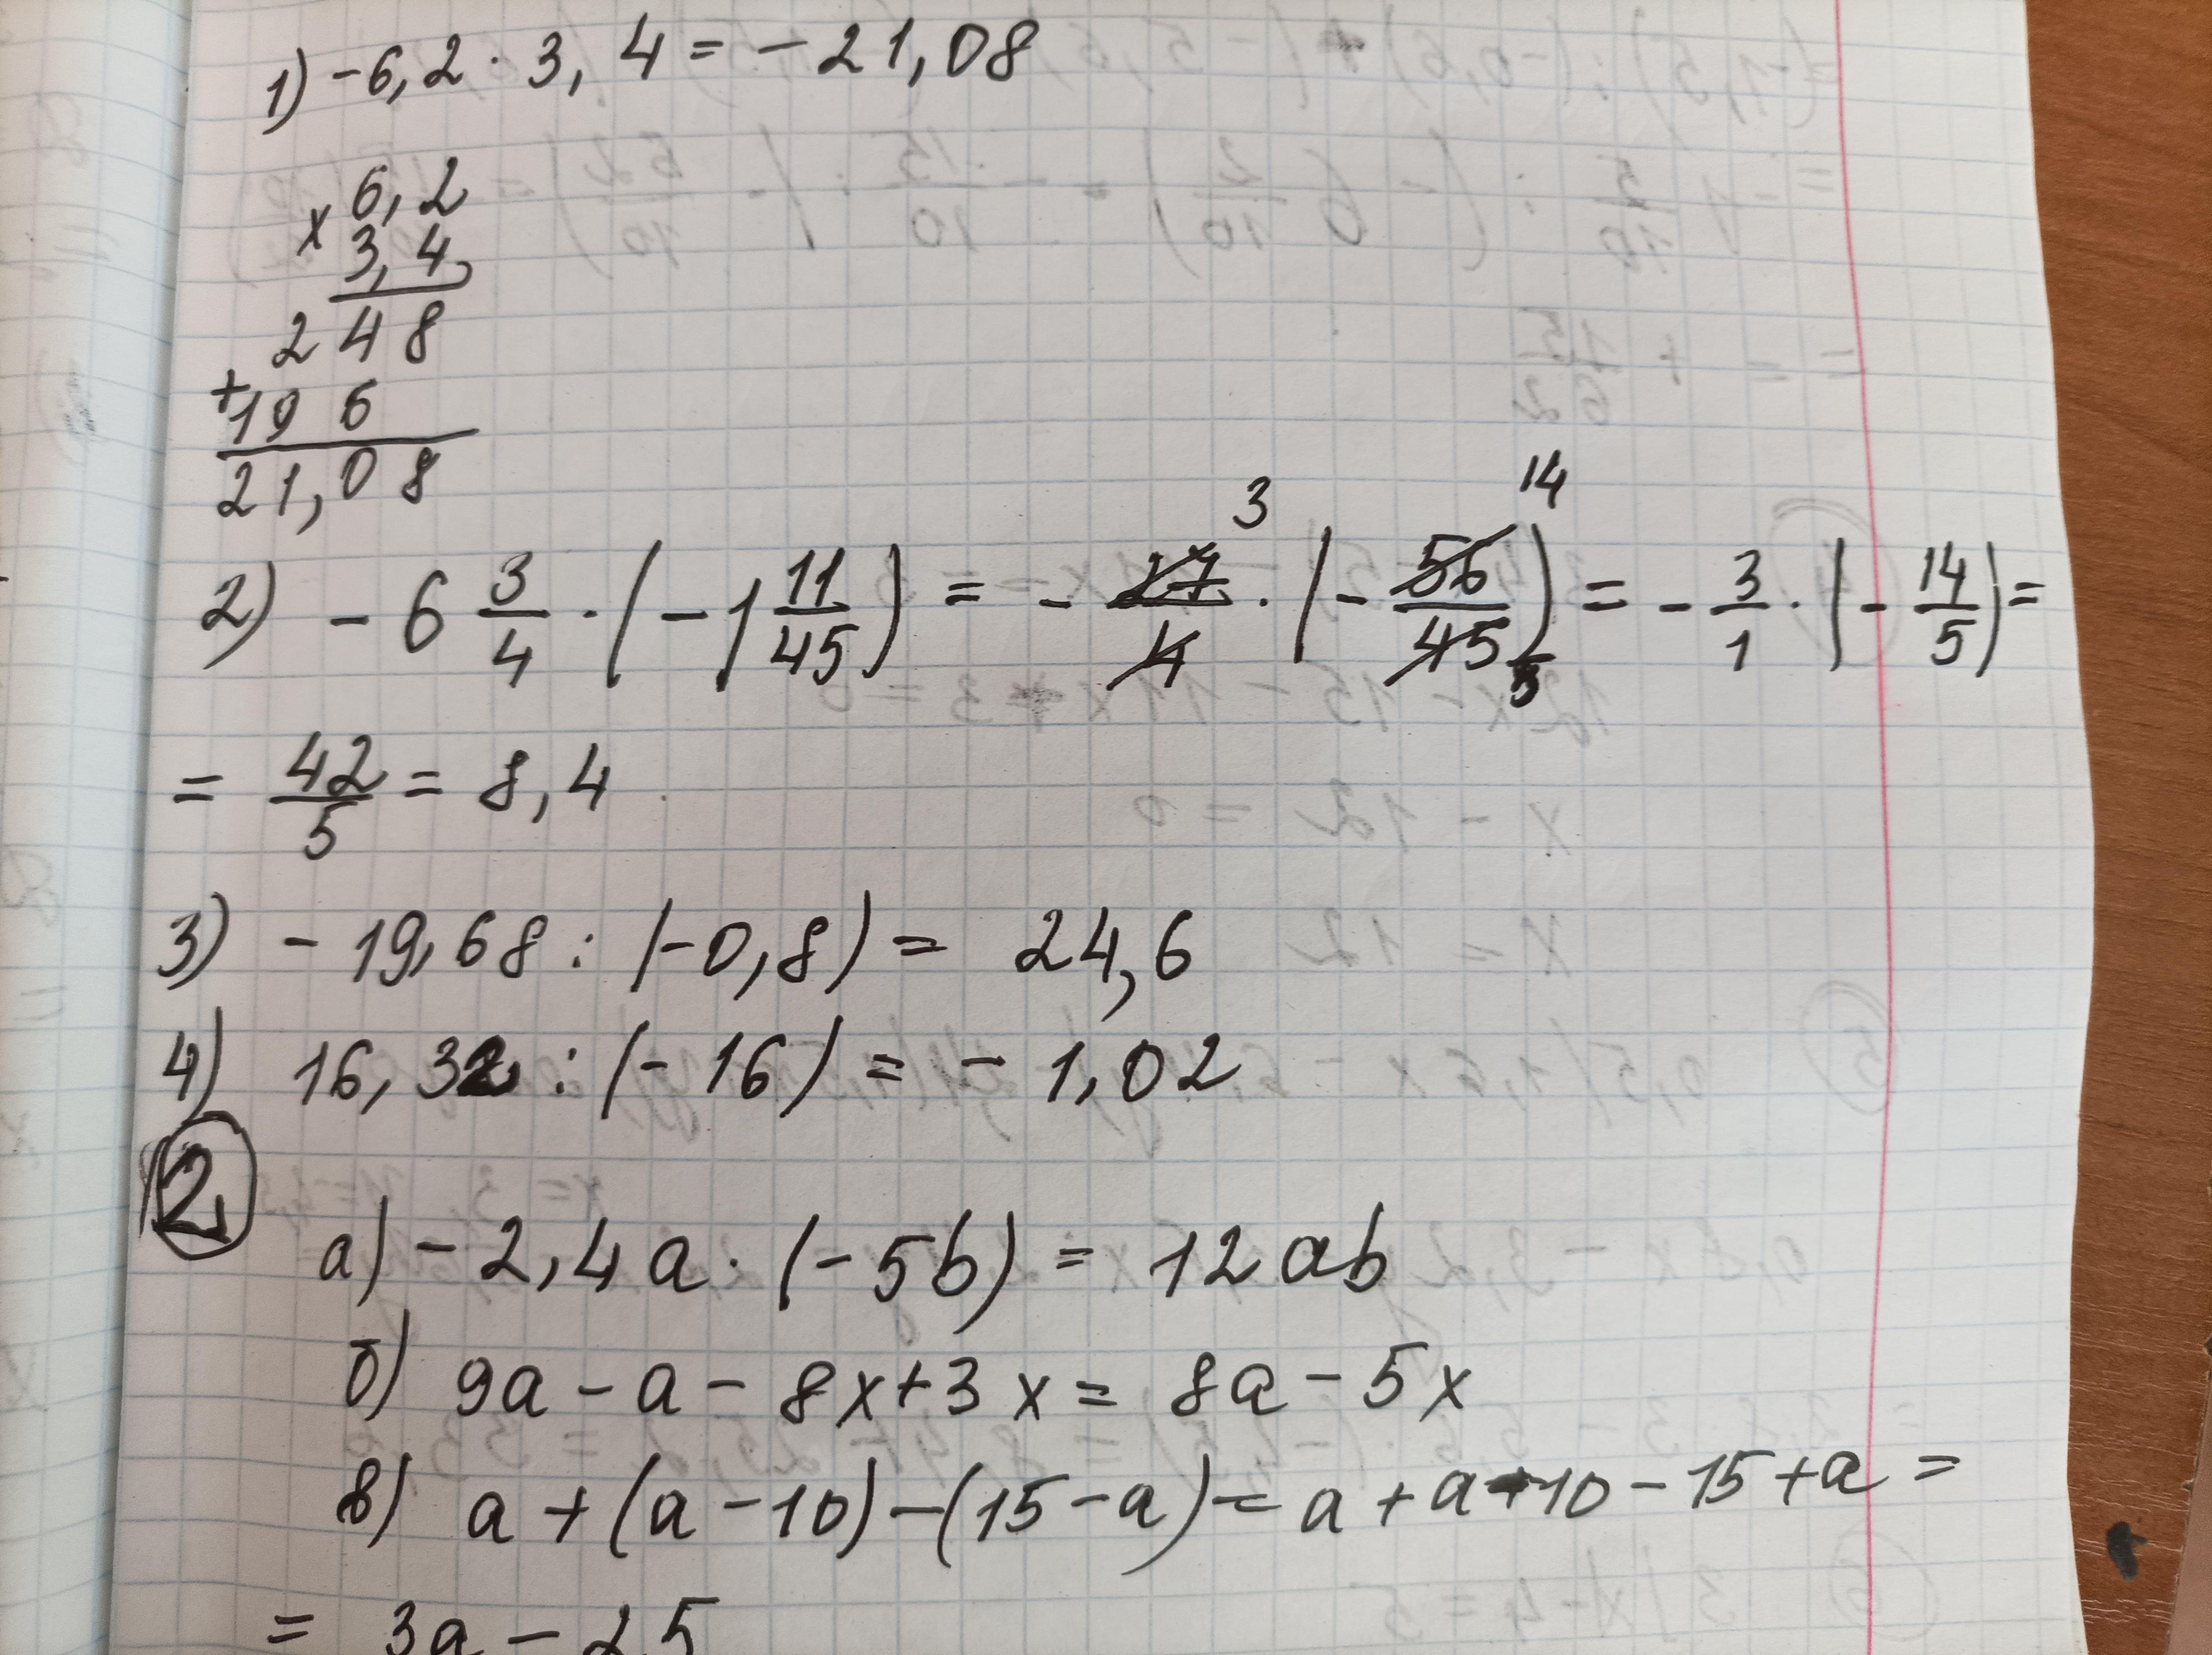 1) -6,2 · 3,4 = -21,08
× 6,2
3,4
248
+ 196
21,08
2) -6 3/4 · (-1 11/45) = - 27/4 · (- 56/45) = - 3/1 · (- 14/5) =
3 14
5
= 42/5 = 8,4
3) -19,68 : (-0,8) = 24,6
4) 16,32 : (-16) = -1,02
2
а) -2,4a · (-5b) = 12ab
б) 9a - a - 8x + 3x = 8a - 5x
в) a + (a - 10) - (15 - a) = a + a - 10 - 15 + a =
= 3a - 25